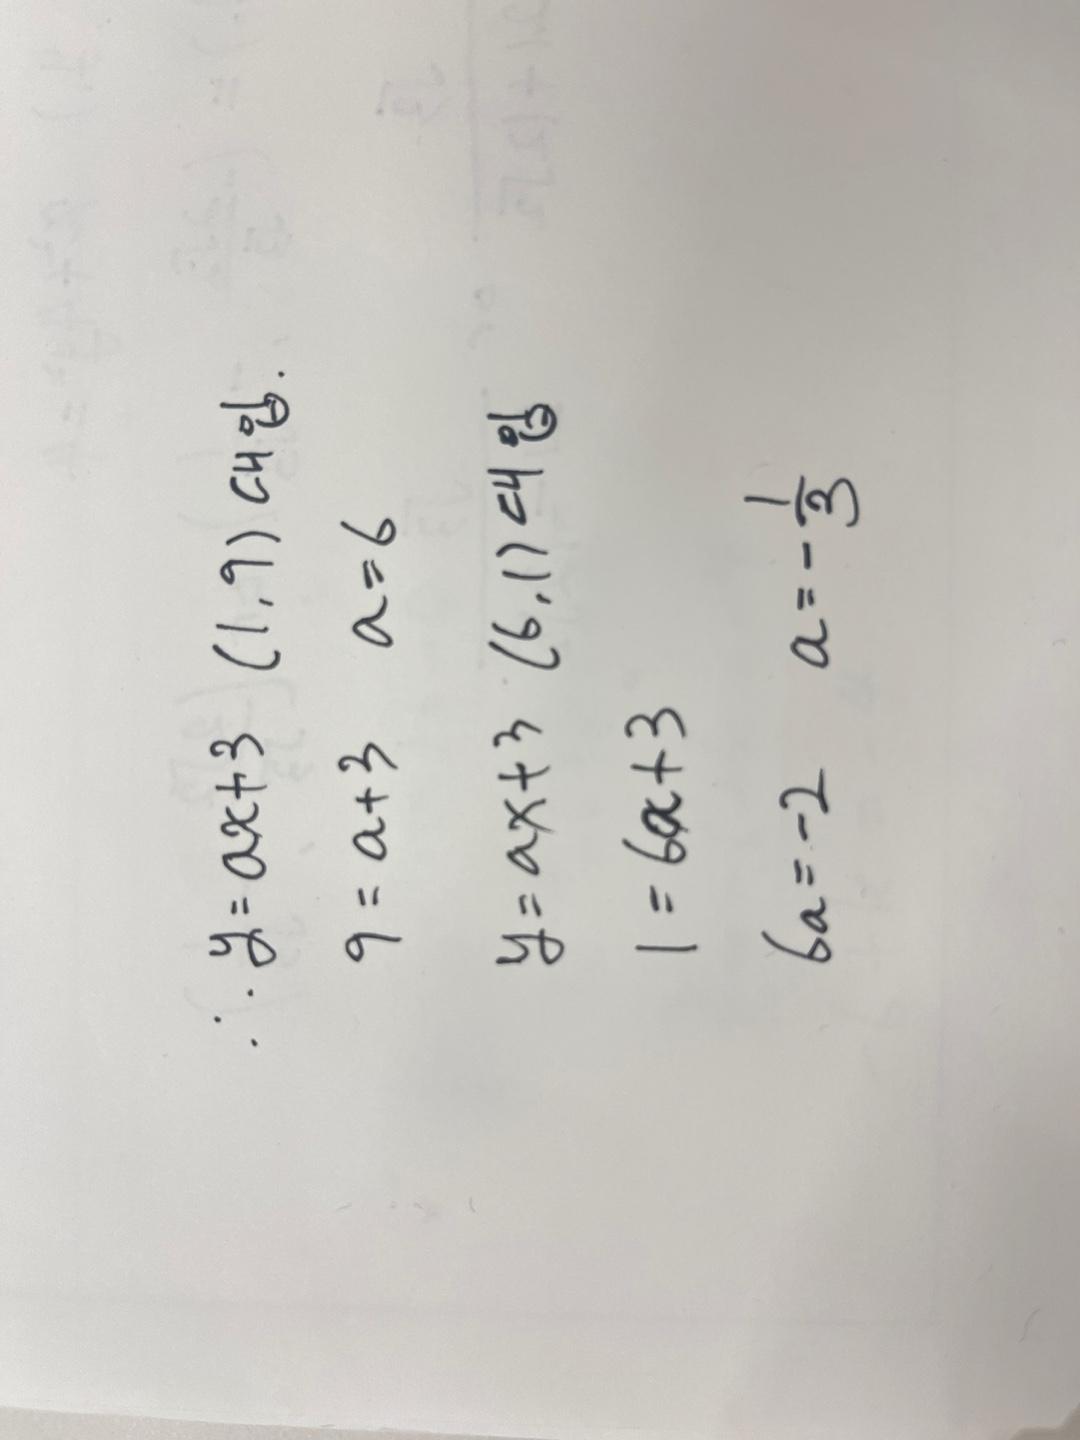 ∴ y=ax+3 (1,9) 대입.
9=a+3 a=6
y=ax+3 (6,1) 대입
1=6a+3
6a=-2 a=-1/3